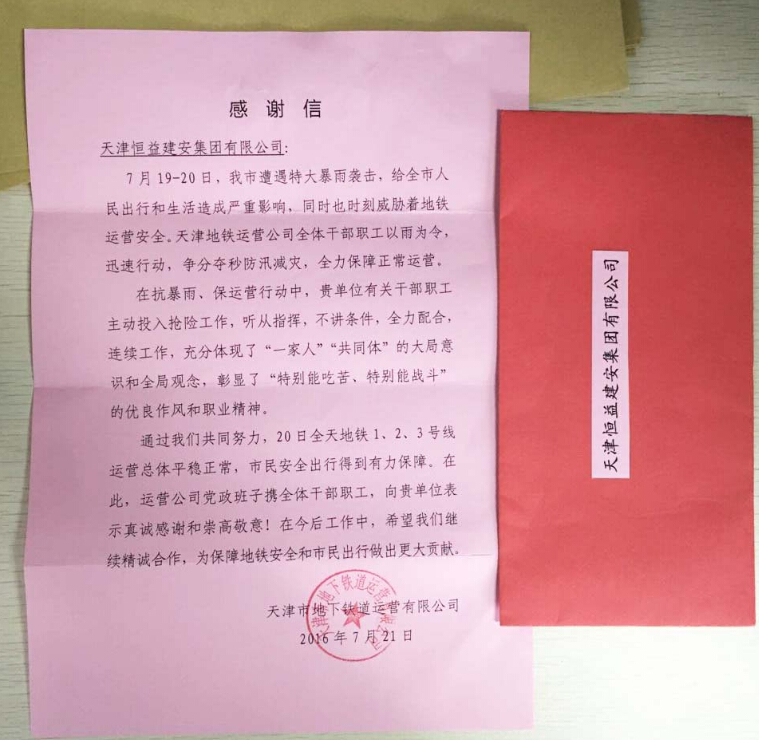 感谢信
天津恒益建安集团有限公司:
7月19-20日，我市遭遇特大暴雨袭击，给全市人
民出行和生活造成严重影响，同时也时刻威胁着地铁
运营安全。天津地铁运营公司全体干部职工以雨为令，
迅速行动，争分夺秒防汛减灾，全力保障正常运营。
在抗暴雨、保运营行动中，贵单位有关干部职工
主动投入抢险工作，听从指挥，不讲条件，全力配合，
连续工作，充分体现了“一家人”“共同体”的大局意
识和全局观念，彰显了“特别能吃苦、特别能战斗”
的优良作风和职业精神。
通过我们共同努力，20日全天地铁1、2、3号线
运营总体平稳正常，市民安全出行得到有力保障。在
此，运营公司党政班子携全体干部职工，向贵单位表
示真诚感谢和崇高敬意！在今后工作中，希望我们继
续精诚合作，为保障地铁安全和市民出行做出更大贡献。
天津市地下铁道运营有限公司
2016年7月21日
天津市地下铁道运营有限公司
天津恒益建安集团有限公司